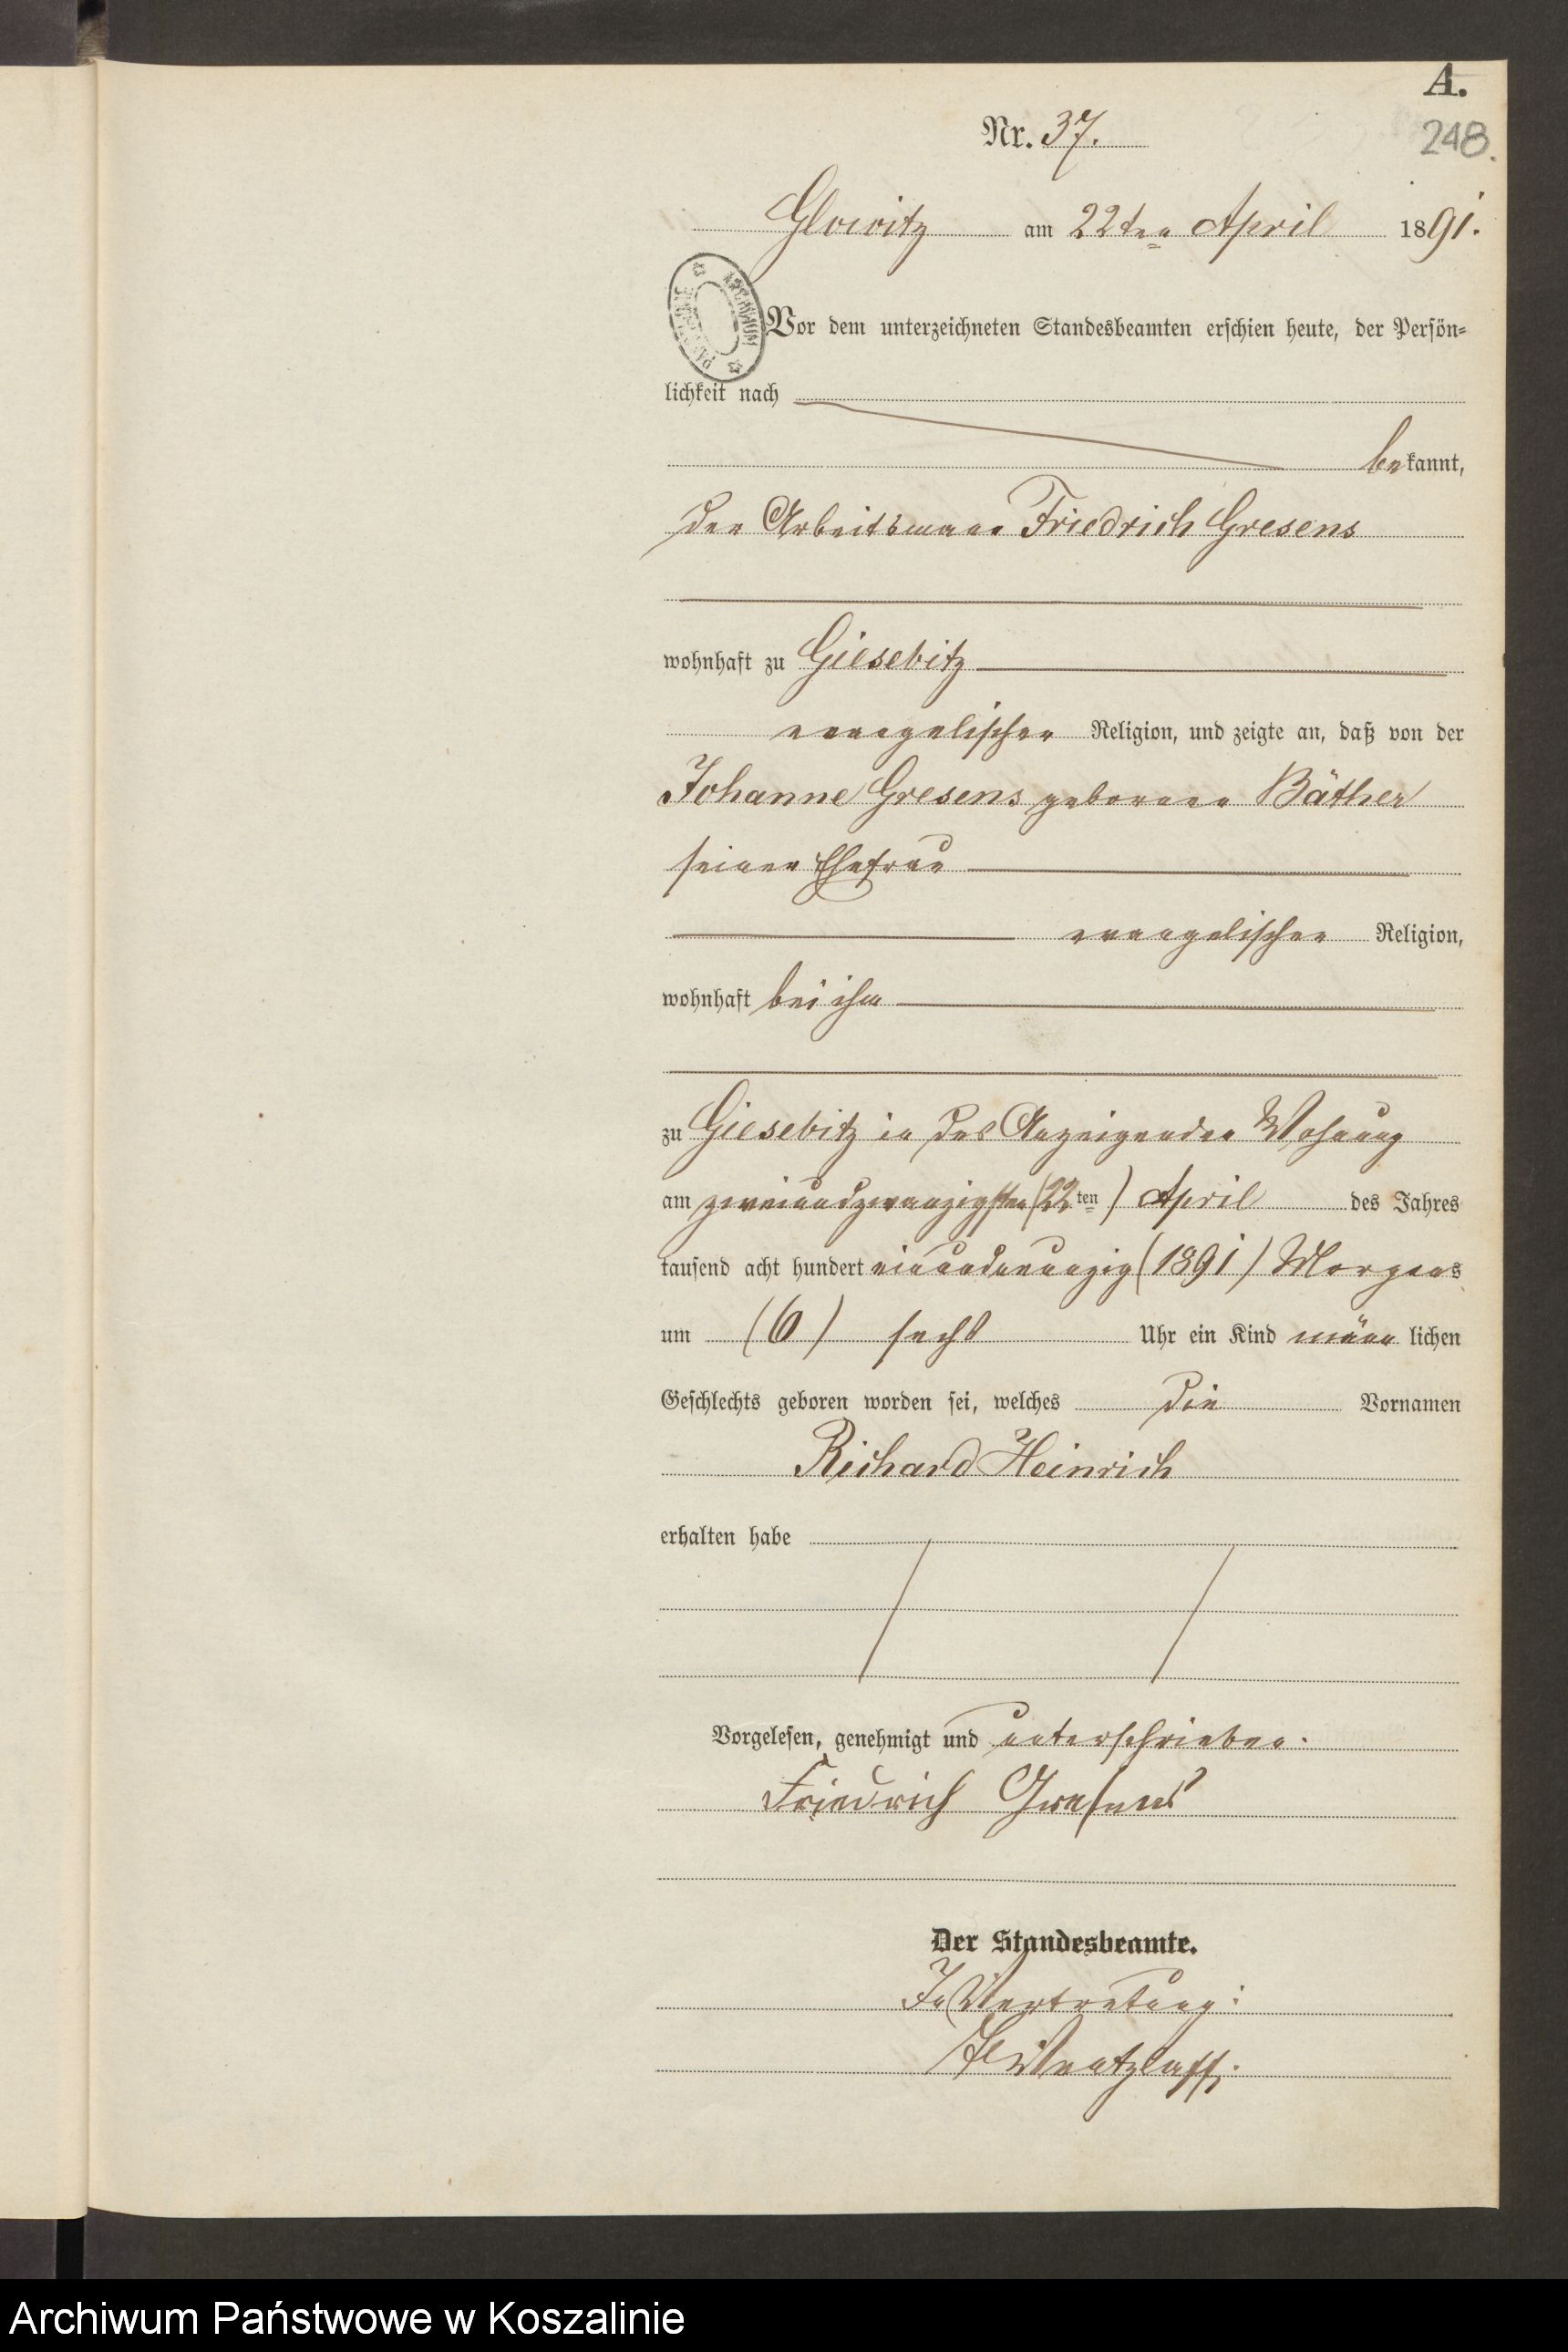 A.
248.
Nr. 37.
Glowitz am 22ten April 1891.
ARCHIWUM PAŃSTWOWE
Vor dem unterzeichneten Standesbeamten erschien heute, der Persön-
lichkeit nach
bekannt,
der Arbeitsmann Friedrich Gresens
wohnhaft zu Giesebitz
evangelischer Religion, und zeigte an, daß von der
Johanne Gresens geborenen Bäther
seiner Ehefrau
evangelischer Religion,
wohnhaft bei ihm
zu Giesebitz in des Anzeigenden Wohnung
am zweiundzwanzigsten (22ten) April des Jahres
tausend acht hundert einundneunzig (1891) Morgens
um (6) sechs Uhr ein Kind männlichen
Geschlechts geboren worden sei, welches die Vornamen
Richard Heinrich
erhalten habe
Vorgelesen, genehmigt und unterschrieben.
Friedrich Gresens
Der Standesbeamte.
In Vertretung:
Wentzlaff.
Archiwum Państwowe w Koszalinie